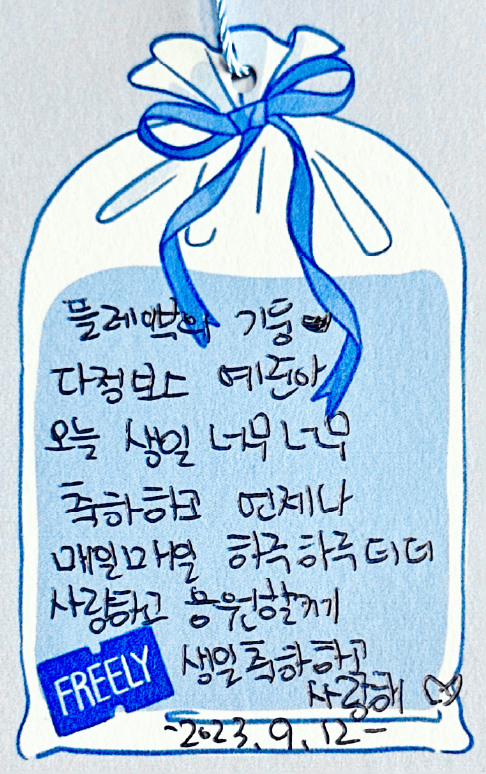 플레이브의 기둥
다정보스 예준아
오늘 생일 너무너무
축하하고 언제나
매일매일 하루하루 더더
사랑하고 응원할게
FREELY
생일축하하고
사랑해 ♡
-2023.9.12-